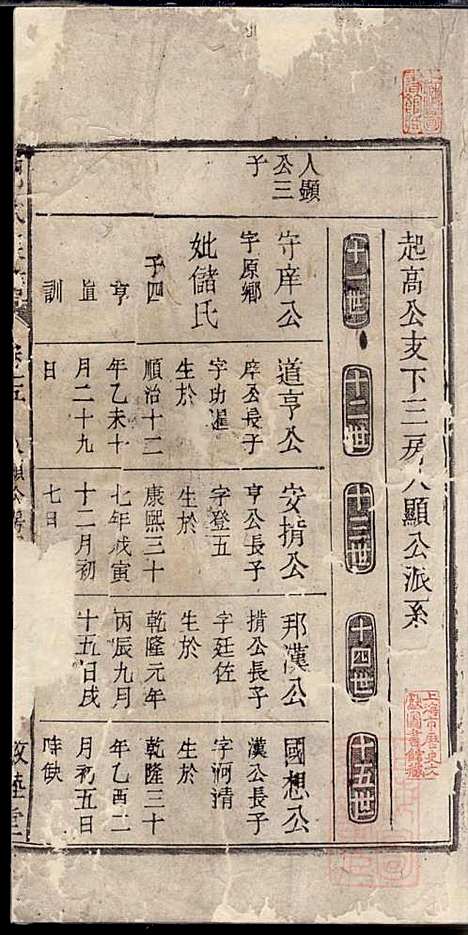 起高公支下三房人顯公派系
十一世
十二世
十三世
十四世
十五世
人顯
公三
子
守庠公
字原鄉
妣儲氏
子四
亨
訓
道亨公
庠公長子
字功暹
生於
順治十二
年乙未十
月二十九
日
安揹公
亨公長子
字登五
生於
康熙三十
七年戊寅
十二月初
七日
邦漢公
揹公長子
字廷佐
生於
乾隆元年
丙辰九月
十五日戌
國想公
漢公長子
字河清
生於
乾隆三十
年乙酉二
月初五日
時缺
上海市歷史文
獻圖書館藏